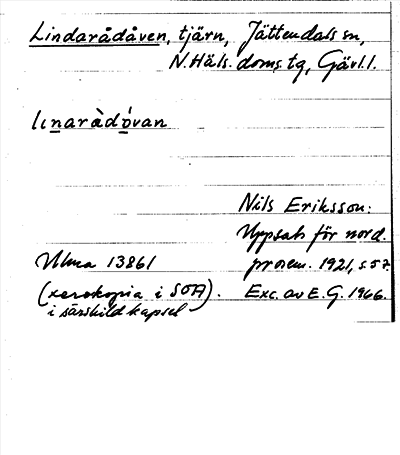 Lindarådåven, tjärn, Jättendals sn,
N.Häls. doms.tg, Gävl.l.
lınaràdóvan
Nils Eriksson:
Uppsats för nord.
Ulma 13861 prosem. 1921, s.57.
(xerokopia i SOA). Exc. av E.G. 1966.
i särskild kapsel